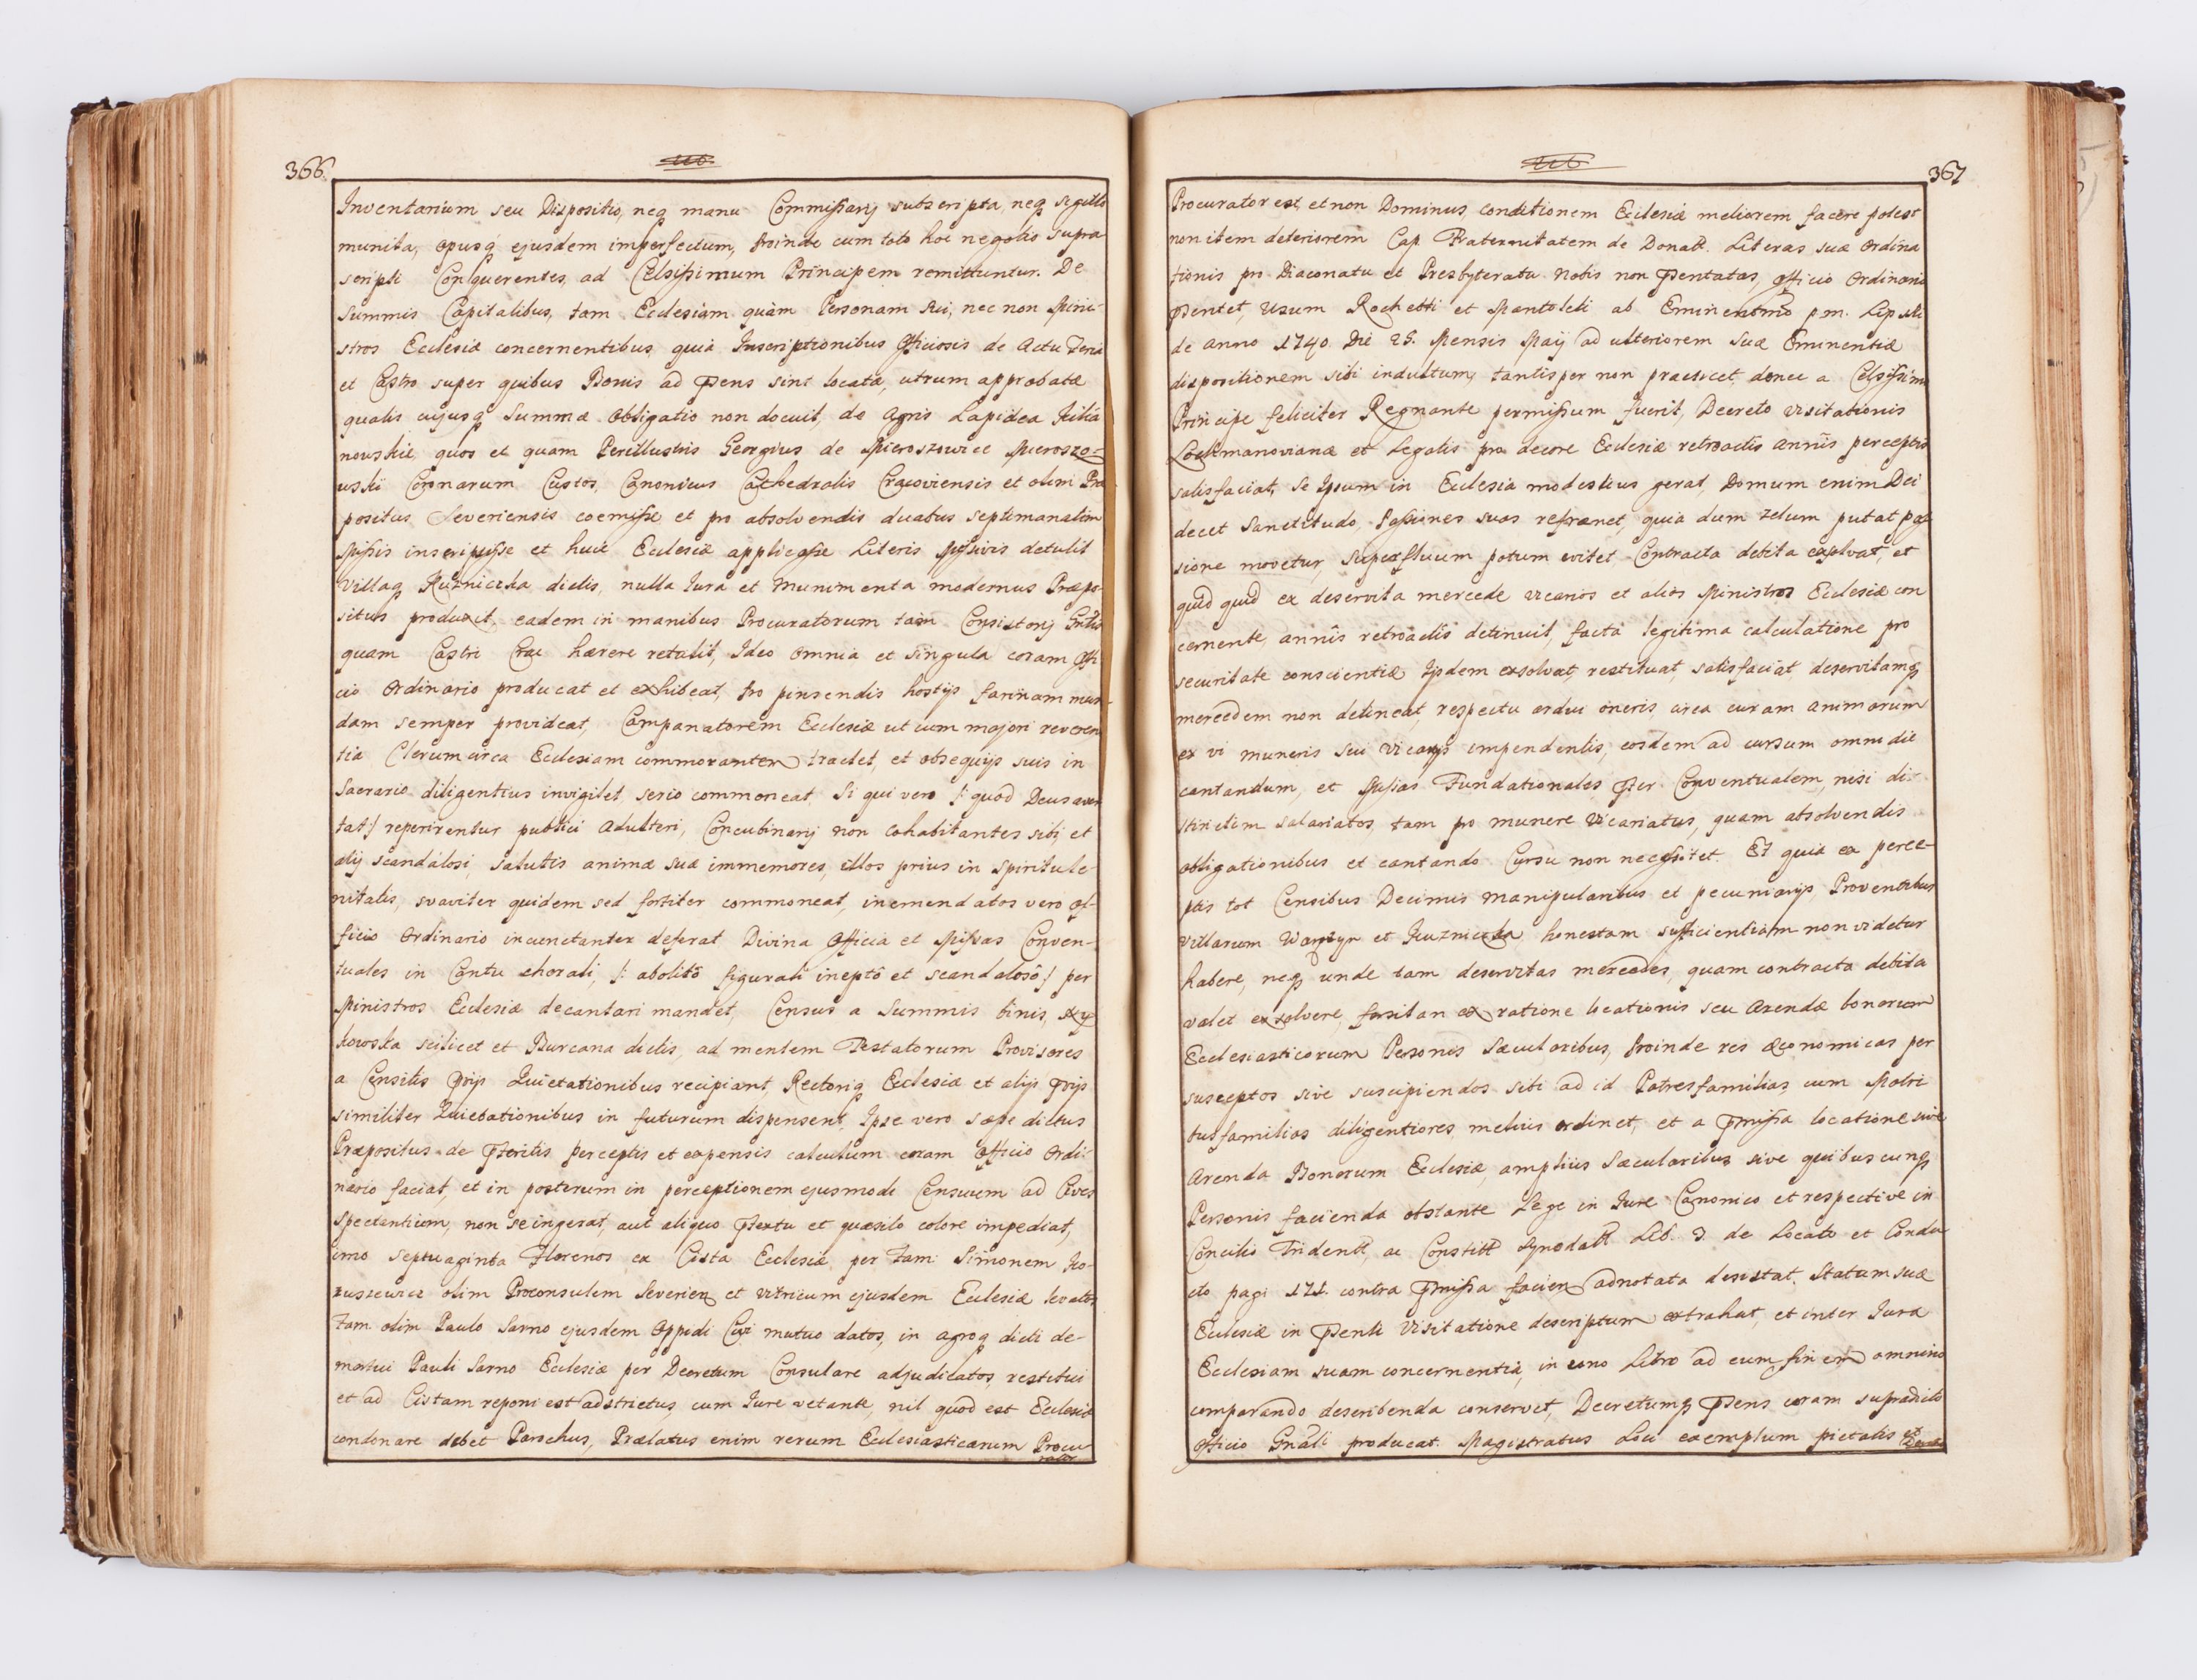 366.
Inventarium seu Dispositio, neq manu Commissarij subscripta, neq sigillo
munita, opusq ejusdem imperfectum, proinde cum toto hoc negotio supra
scripti Conquerentes, ad Celsissimum Principem remittuntur. De
Summis Capitalibus, tam Ecclesiam quàm Personam sui, nec non Mini-
stros Ecclesiæ concernentibus, quia Inscriptionibus Officiosis de Actu
et Castro super quibus Bonis ad Psens sint locatæ, utrum approbatæ
qualis cujusq Summæ obligatio non docuit, de Agris Lapidea
quos et quam Perillustris Georgius de Mieroszowice Mieroszo-
wski Coronarum Custos, Canonicus Cathedralis Cracoviensis et olim Præ
positus Severiensis coemisse et pro absolvendis duabus septimanatim
Missis inscripsisse et huic Ecclesiæ applicasse Literis Missivis detulit
Villaq Kuzniczka dictis, nulla Iura et Munimenta modernus Præpo-
situs produxit, eadem in manibus Procuratorum tam Consistorij Gnlis
quam Castri Crac hærere retulit, Ideo omnia et singula coram Offi
cio Ordinario producat et exhibeat, Pro pinsendis hostijs farinam mun-
dam semper provideat, Campanatorem Ecclesiæ ut cum majori reveren
tia Clerum circa Ecclesiam commorantem tractet, et obsequijs suis in
Sacrario diligentius invigilet, serio commoneat, Si qui vero /: quod Deus aver
tat :/ reperirentur publici Adulteri, Concubinarij non Cohabitantes sibi, et
alij scandalosi, salutis animæ suæ immemores, illos prius in spiritu le-
nitatis, svaviter quidem sed fortiter commoneat, inemendatos vero of-
ficio Ordinario incunctanter deferat, Divina Officia et Missas Conven-
tuales in Cantu chorali, /: abolitô figurali ineptô et scandalosô :/ per
Ministros Ecclesiæ decantari mandet, Census a Summis binis,
kowska scilicet et Burcana dictis, ad mentem Testatorum Provisores
a Censitis Pvijs Quietationibus recipiant, Rectoriq Ecclesiæ et alijs Pvijs
similiter Quietationibus in futurum dispensent, Ipse vero sæpe dictus
Præpositus de Pteritis perceptis et expensis calculum coram Officio Ordi-
nario faciat, et in posterum in perceptionem ejusmodi Censuum ad Cives
Spectantium, non se ingerat, aut aliquo Ptextu et quæsito colore impediat,
imo septuaginta Florenos ex Cista Ecclesiæ per Fam: Simonem Ko-
russewicz olim Proconsulem Severien et Vitricum ejusdem Ecclesiæ levatos
Fam olim Paulo Sarno ejusdem Oppidi Civi mutuo datos, in agroq dicti de-
mortui Pauli Sarno Ecclesiæ per Decretum Consulare adjudicatos, restitui
et ad Cistam reponi est adstrictus, cum Iure vetante, nil quod est Ecclesiæ
condonare debet Parochus, Prælatus enim rerum Ecclesiasticarum Procu
rator
367
Procurator est, et non Dominus, conditionem Ecclesiæ meliorem facere potest
non item deteriorem Cap. Fraternitatem de Donatt. Literas suæ Ordina
tionis pro Diaconatu et Presbyteratu Nobis non Psentatas, officio Ordinario
Psentet, Usum Rochetti et Mantoleti ab Eminentmo p.m. Lipski
de Anno 1740. Die 25. Mensis Maij ad ulteriorem Suæ Eminentiæ
dispositionem sibi indultum, tantisper non præsocet, donec a Celsissimo
Principe feliciter Regnante permissum fuerit, Decreto Visitationis
Lochmanovianæ et legatis pro decore Ecclesiæ retroactis annis perceptis
satisfaciat, se Ipsum in Ecclesia modestius gerat, Domum enim Dei
decet Sanctitudo, Passiones suas refrænet, quia dum zelum putat pas
sione movetur, Superfluum potum evitet Contracta debita exolvat, et
quid quid ex deservita mercede vicarios et alios Ministros Ecclesiæ con
cernente, annis retroactis detinuit, facta legitima calculatione pro
securitate conscientiæ Ipsdem exsolvat, restituat, satisfaciat, deservitamq
mercedem non detineat, respectu ardui oneris circa curam animarum
ex vi muneris sui Vicarijs impendentis, eosdem ad cursum omni die
cantandum, et Missas Fundationales Pter Conventualem, nisi di-
stinctim salariatos, tam pro munere Vicariatus, quam absolvendis
obligationibus et cantando Cursu non necessitet. Et quia ex perce-
ptis tot Censibus Decimis Manipularibus et pecuniarijs, Proventibus
Villarum et Kuzniczka honestam sufficientiam non videtur
habere, neq unde tam deservitas mercedes, quam contracta debita
valet exsolvere, forsitan ex ratione locationis seu Arendæ bonorum
Ecclesiasticorum Personis Sæcularibus, Proinde res œconomicas per
susceptos sive suscipiendos sibi ad id Patresfamilias, cum Matri
busfamilias diligentiores melius ordinet, et a Pmissa locatione sive
Arenda Bonorum Ecclesiæ, amplius Sæcularibus sive quibuscunq
Personis facienda obstante Lege in Iure Canonico et respective in
Concilio Tridentt, ac Constitt Synodatt Lib. 3. de Locato et Condu
cto pagi 171. contra Pmissa facien adnotata desistat. Statum suæ
Ecclesiæ in Psenti Visitatione descriptum extrahat, et inter Iura
Ecclesiam suam concernentia, in uno Libro ad eum finem omnino
comparando describenda conservet, Decretumq Psens coram supradicto
Officio Gnali producat. Magistratus Loci exemplum pietatis et